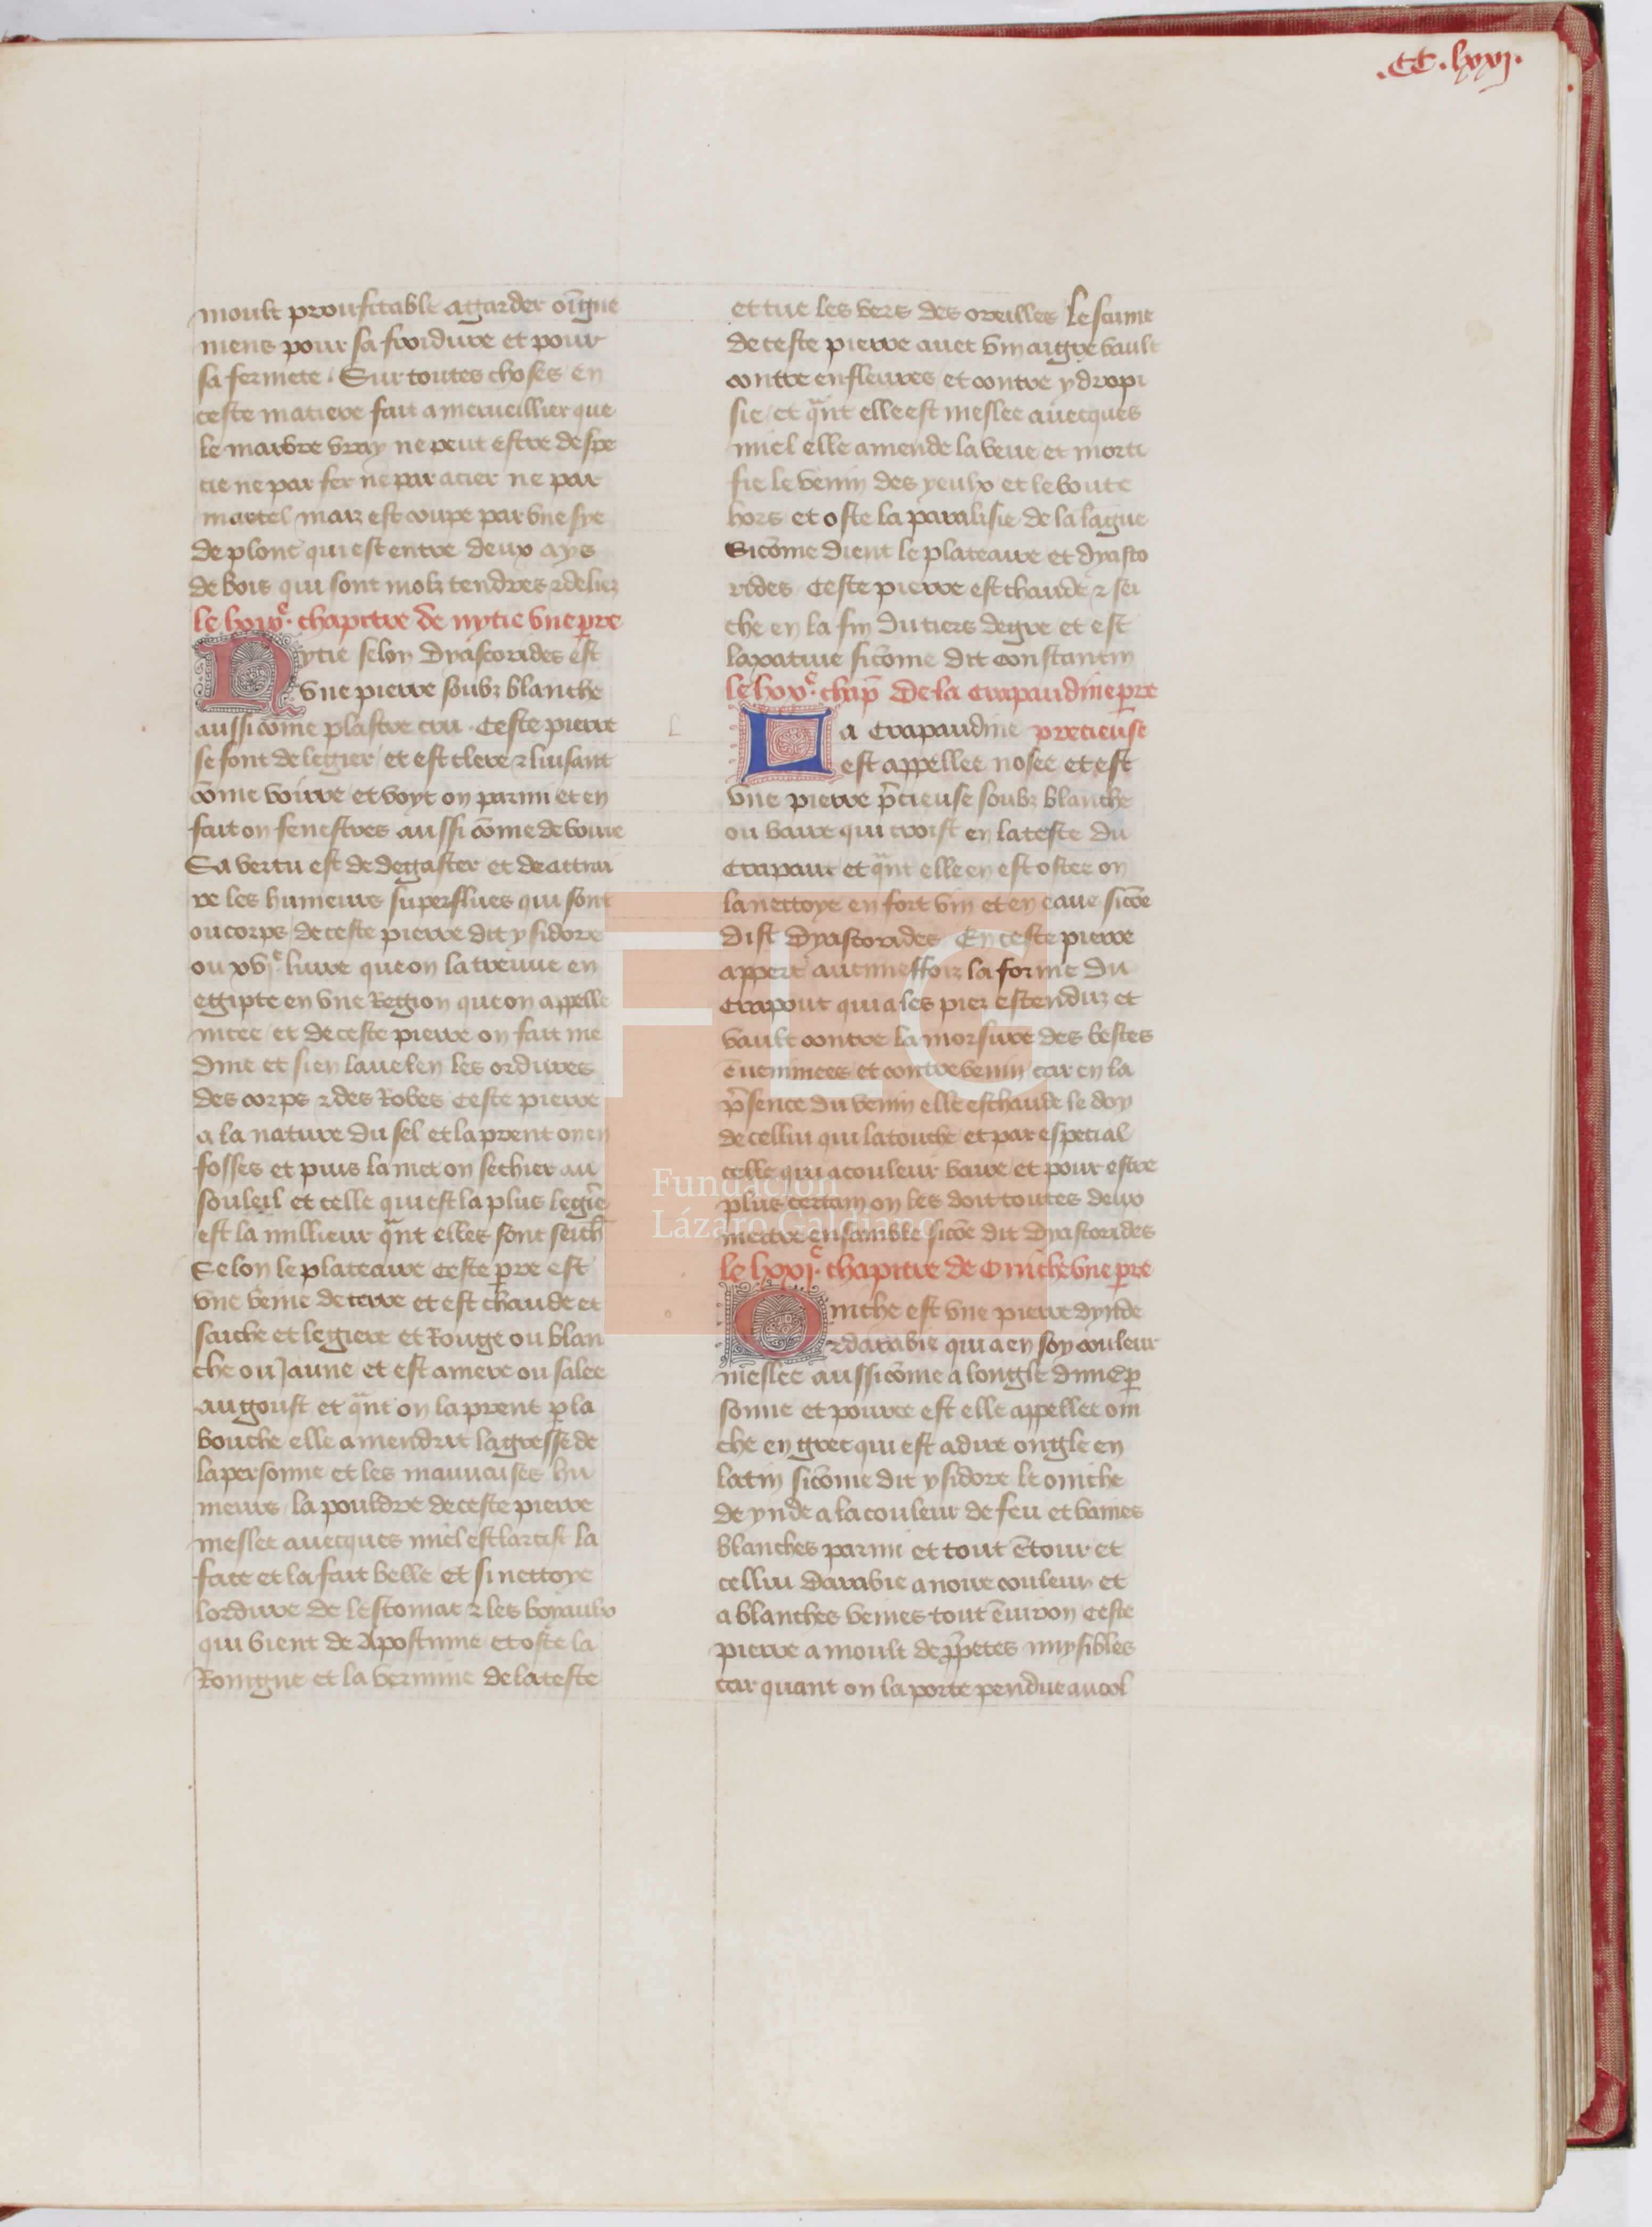 .CC.lxxj.
moult prouffitable a garder oīgne
mens pour sa froidure et pour
sa fermete. Sur toutes choses en
ceste matiere fait a merueillier que
le marbre vray ne peut estre despe
cie ne par fer ne par acier ne par
martel maiz est coupe par vne sye
de plonc qui est entre deux ays
de bois qui sont molz tendres ⁊ deliez
le lxixͤ. chapitre de nytie vne p̄re
Nytie selon dyascorides est
vne pierre soubz blanche
aussi cōme plastre cru. Ceste pierre
se font de legier et est clere ⁊ luisant
cōme voirre et voyt on parmi et en
fait on fenestres aussi cōme de voirre
Sa vertu est de degaster et de attrai
re les humeurs superflues qui sont
ou corps de ceste pierre dit ysidore
ou xvjͤ. liure que on la treuue en
egipte en vne Region que on appelle
nitee et de ceste pierre on fait me
dine et si en laue len les ordures
des corps ⁊ des Robes Ceste pierre
a la nature du sel et la prent on en
fosses et puis la met on sechier au
souleil et celle qui est la plus legie
est la millieur q̄nt elles sont seich
Selon le plateaire Ceste p̄re est
vne veine de terre et est chaude et
saiche et legiere et Rouge ou blan
che ou Jaune et est amere ou salee
au goust et q̄nt on la prent p̱ la
bouche elle amendrit la gresse de
la personne et les mauuaises hu
meurs la pouldre de ceste pierre
meslee auecques miel esclarcist la
face et la fait belle et si nettoye
lordure de lestomac ⁊ les boyaulx
qui vient de Apostume et oste la
Roingne et la vermine de la teste
et tue les vers des oreilles Lescume
de ceste pierre auec vin aigre vault
contre enfleures et contre ydropi
sie et q̄nt elle est meslee auecques
miel elle amende la veue et morti
fie le venin des yeulx et le boute
hors et oste la paralisie de la lāgue
Sicōme dient le plateaire et dyasco
rides Ceste pierre est chaude ⁊ sei
che en la fin du tiers degre et est
laxatiue sicōme dit constantin
le lxxͤ. chap̄ De la Crapaudine p̄re
La Crapaudine precieuse
est appellee nosee et est
vne pierre p̄cieuse soubz blanche
ou vaire qui croist en la teste du
Crapaut et q̄nt elle en est ostee on
la nettoye en fort vin et en eaue sicōe
dist dyascorides En ceste pierre
appert aucunesfoiz la forme du
Crapout qui a les piez estenduz et
vault contre la morsure des bestes
ēuenimees et contre venin car en la
p̄sence du venin elle eschaude le doy
de cellui qui la touche et par especial
celle qui a couleur vaire et pour estre
plus certain on les doit toutes deux
mettre ensamble sicōe dit dyascorides
le lxxjͤ. chapitre de Oniche vne p̄re
Oniche est vne pierre dynde
⁊ darabie qui a en soy couleur
meslee aussi cōme a longle dune p̱
sonne et pource est elle appellee oni
che en grec qui est a dire ongle en
latin sicōme dit ysidore le oniche
de ynde a la couleur de feu et vaines
blanches parmi et tout ētour et
cellui darabie a noire couleur et
a blanches veines tout ēuiron Ceste
pierre a moult de p̱p̄etes nuysibles
car quant on la porte pendue au col
Fundación
Lázaro Galdiano